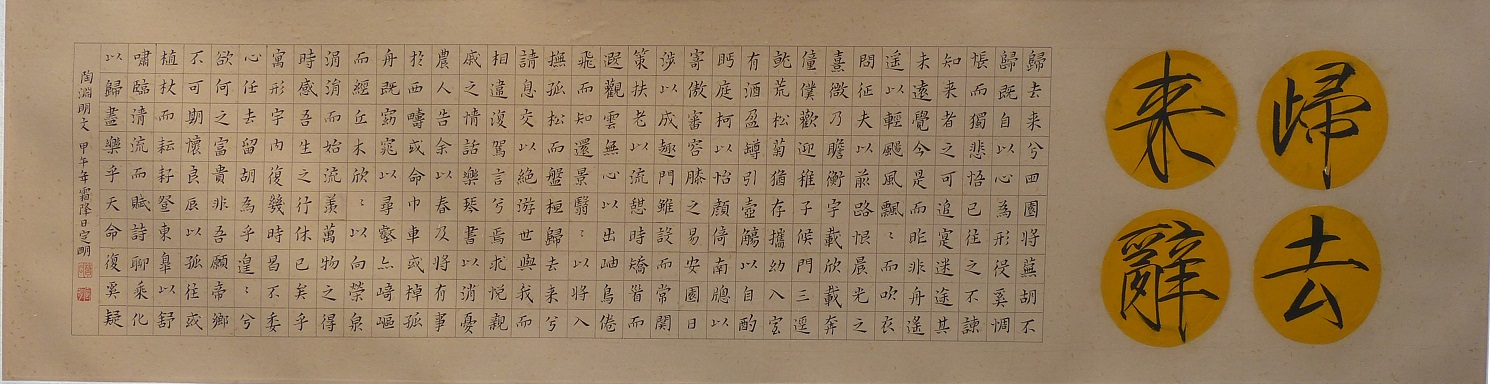 歸去
来辭
歸去来兮田園將蕪胡不
歸既自以心為形役奚惆
悵而獨悲悟已往之不諫
知来者之可追寔迷途其
未遠覺今是而昨非舟遙
遥以輕颺風飄〻而吹衣
問征夫以前路恨晨光之
熹微乃瞻衡宇載欣載奔
僮僕歡迎稚子候門三逕
就荒松菊猶存攜幼入室
有酒盈罇引壺觴以自酌
眄庭柯以怡顏倚南牕以
寄傲審容膝之易安園日
涉以成趣門雖設而常関
策扶老以流憇時矯首而
遐觀雲無心以出岫鳥倦
飛而知還景翳〻以將入
撫孤松而盤桓歸去来兮
請息交以絕游世與我而
相遺復駕言兮焉求悅親
戚之情話樂琴書以消憂
農人告余以春及將有事
於西疇或命巾車或棹孤
舟既窈窕以尋壑亦崎嶇
而經丘木欣〻以向榮泉
涓涓而始流羨萬物之得
時感吾生之行休已矣乎
寓形宇内復幾時曷不委
心任去留胡為乎遑〻兮
欲何之富貴非吾願帝鄉
不可期懷良辰以孤往或
植杖而耘耔登東皋以舒
嘯臨清流而賦詩聊乘化
以歸盡樂乎天命復奚疑
陶淵明文 甲午年霜降日定明